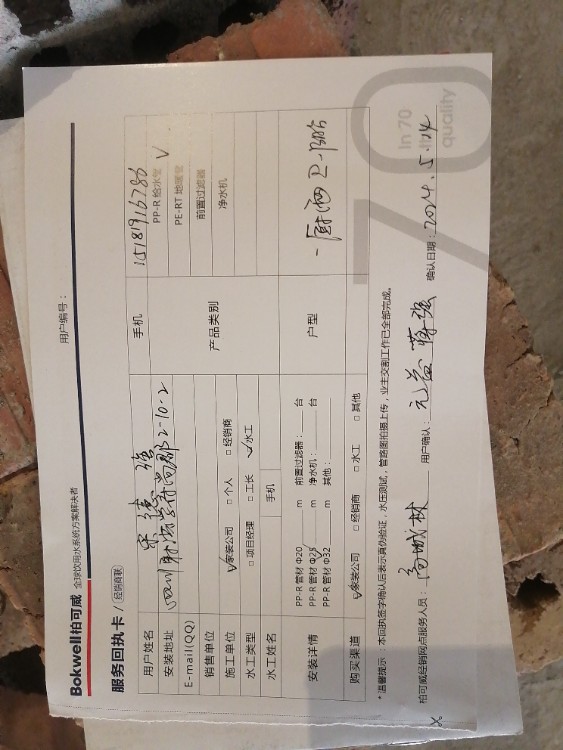 Bokwell柏可威 全球饮用水系统方案解决者
用户编号：
服务回执卡 / 经销商联
用户姓名 宋德强 手机 15181916286
安装地址 四川射洪紫荆尚郡2-10-2
E-mail(QQ)
产品类别 PP-R 给水管 √
PE-RT 地暖管
前置过滤器
净水机
销售单位
施工单位 √家装公司 □ 个人 □ 经销商
水工类型 □ 项目经理 □ 工长 √水工
水工姓名 手机
安装详情 PP-R 管材 Φ20 m 前置过滤器： 台
PP-R 管材 Φ25 m 净水机： 台
PP-R 管材 Φ32 m 其他：
户型 一厨两卫
购买渠道 √家装公司 □ 经销商 □ 水工 □ 其他
*温馨提示：本回执签字确认后表示真伪验证，水压测试，管路图拍摄上传，业主交割工作已全部完成。
柏可威经销网点服务人员： 用户确认： 蒋强 确认日期：2024.5.14
70
In 70
quality